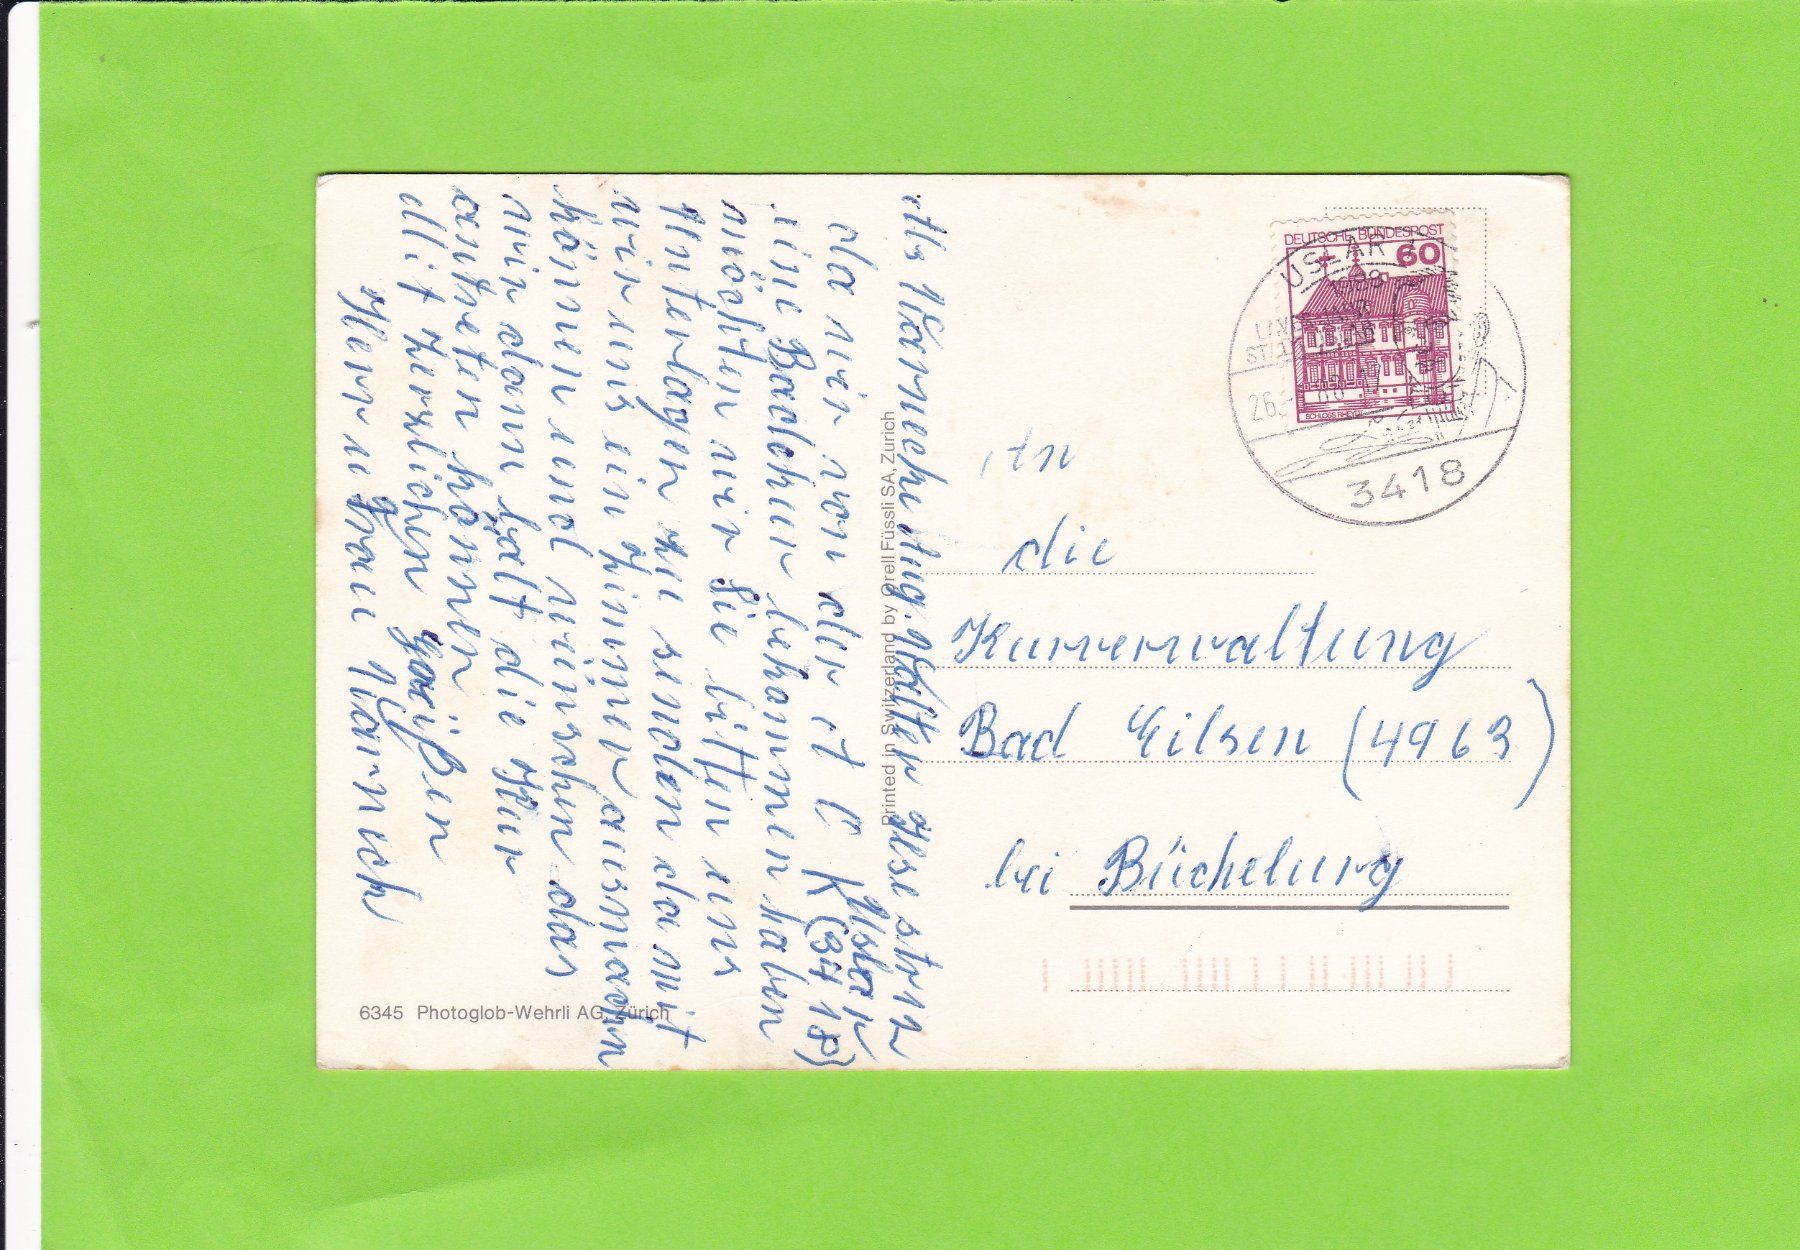 Abs Warnecke Aug. Walter Ilse str 12
Uslar
(3418)
da wir von der A C K
eine Badekur bekammen haben
möchten wir Sie bitten uns
Unterlagen zu senden damit
wir uns ein Zimmer ausmachen
können und wünschen das
wir dann bält die Kur
antreten können
Mit herzlichen Grüßen
Herr u Frau Warneck
Printed in Switzerland by Orell Füssli SA, Zürich
6345 Photoglob-Wehrli AG, Zürich
DEUTSCHE BUNDESPOST
60
SCHLOSS RHEYDT
USLAR
3418
An
die
Kurverwaltung
Bad Eilsen (4963)
bei Bückeburg